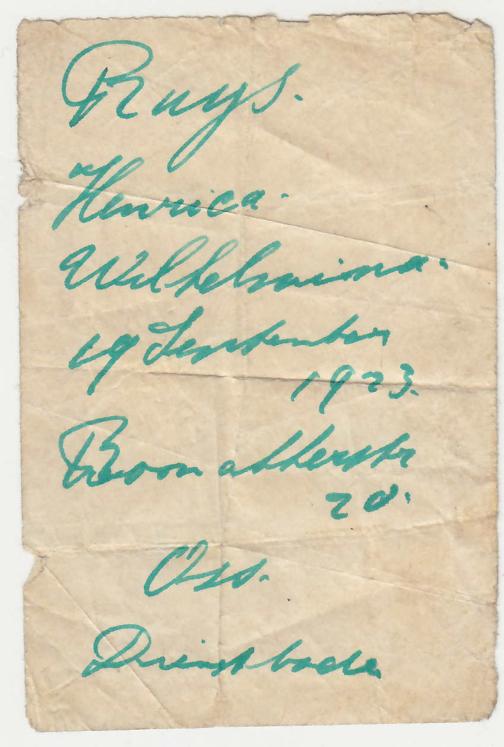 Ruys.
Henrica.
Wilhelmina.
19 September
1923.
Boonakkerstr
20.
Oss.
Dienstbode